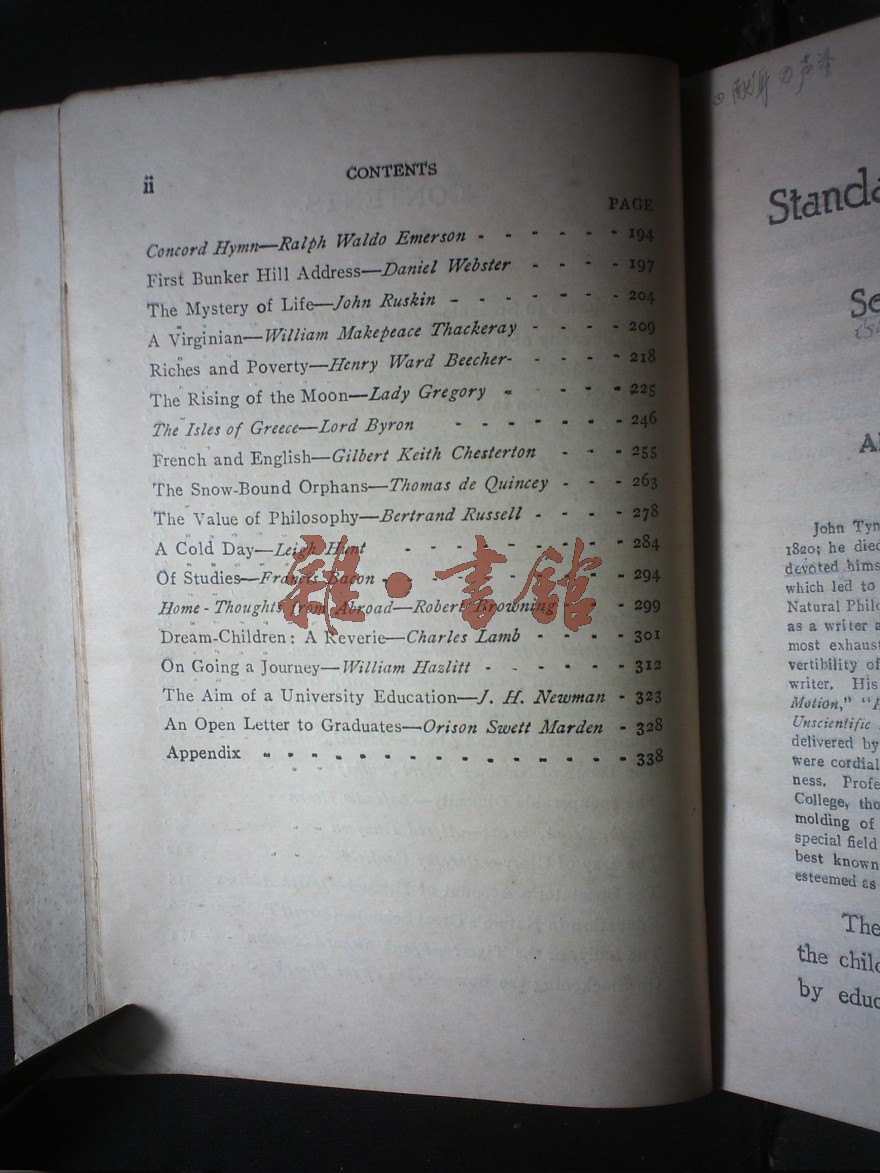 ii
CONTENTS
PAGE
Concord Hymn—Ralph Waldo Emerson - - - - - - 194
First Bunker Hill Address—Daniel Webster - - - - 197
The Mystery of Life—John Ruskin - - - - - - - 204
A Virginian—William Makepeace Thackeray - - - - 209
Riches and Poverty—Henry Ward Beecher- - - - - 218
The Rising of the Moon—Lady Gregory - - - - - 225
The Isles of Greece—Lord Byron - - - - - - - 246
French and English—Gilbert Keith Chesterton - - - 255
The Snow-Bound Orphans—Thomas de Quincey - - - 263
The Value of Philosophy—Bertrand Russell - - - - 278
A Cold Day—Leigh Hunt - - - - - - - - 284
Of Studies—Francis Bacon - - - - - - - - 294
Home-Thoughts from Abroad—Robert Browning - - - 299
Dream-Children: A Reverie—Charles Lamb - - - - 301
On Going a Journey—William Hazlitt - - - - - - 312
The Aim of a University Education—J. H. Newman - 323
An Open Letter to Graduates—Orison Swett Marden - 328
Appendix - - - - - - - - - - - - - - 338
雜·書館
Standa
Se
John Tyn
1820; he died
devoted hims
which led to
Natural Philo
as a writer a
most exhaust
vertibility of
writer. His
Motion," "
Unscientific
delivered by
were cordial
ness. Profe
College, tho
molding of
special field
best known
esteemed as
The
the child
by educ